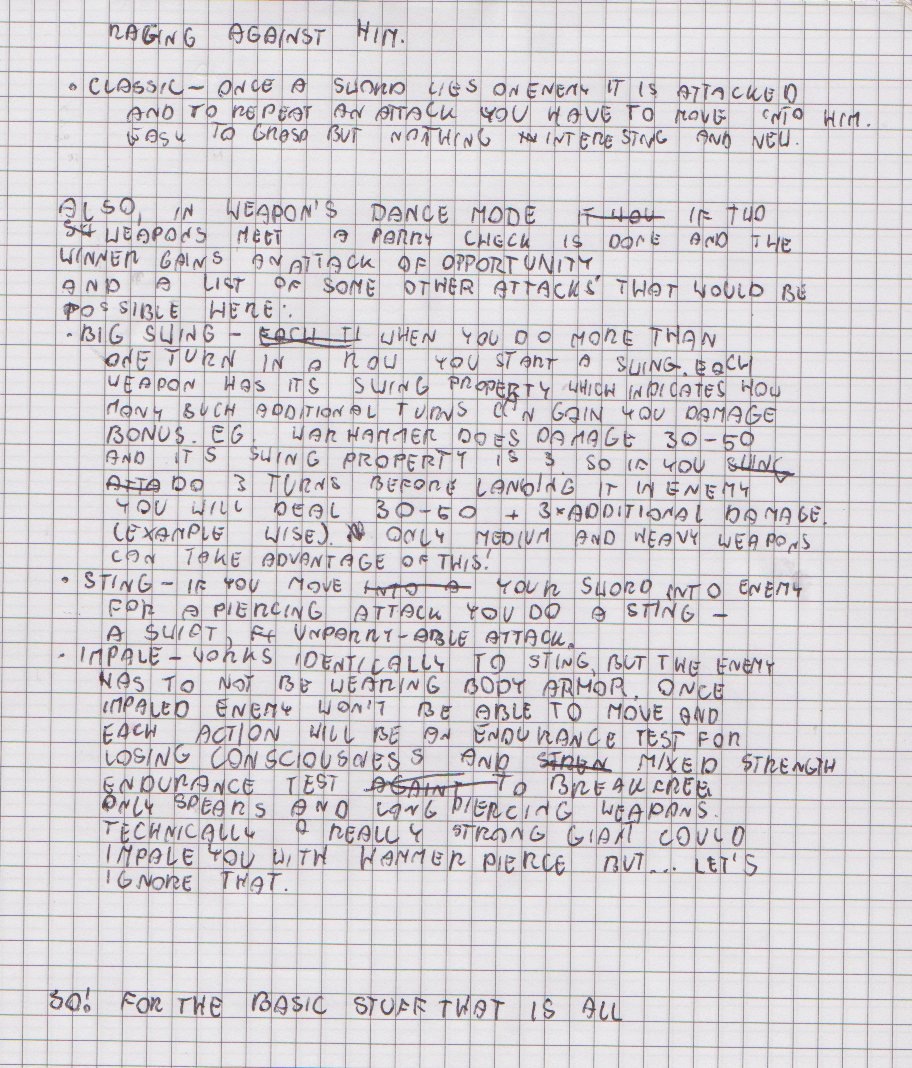 RAGING AGAINST HIM.
• CLASSIC – ONCE A SWORD LIES ON ENEMY IT IS ATTACKED
AND TO REPEAT AN ATTACK YOU HAVE TO MOVE INTO HIM.
EASY TO GRASP BUT NOTHING INTERESTING AND NEW.
ALSO, IN WEAPON'S DANCE MODE IT YOU IF TWO
SW WEAPONS MEET A PARRY CHECK IS DONE AND THE
WINNER GAINS AN ATTACK OF OPPORTUNITY
AND A LIST OF SOME OTHER ATTACKS THAT WOULD BE
POSSIBLE HERE:
• BIG SWING – EACH TI WHEN YOU DO MORE THAN
ONE TURN IN A ROW YOU START A SWING. EACH
WEAPON HAS ITS SWING PROPERTY WHICH INDICATES HOW
MANY SUCH ADDITIONAL TURNS CAN GAIN YOU DAMAGE
BONUS. EG. WARHAMMER DOES DAMAGE 30-50
AND IT'S SWING PROPERTY IS 3. SO IF YOU SWING
ATTA DO 3 TURNS BEFORE LANDING IT IN ENEMY
YOU WILL DEAL 30-50 + 3*ADDITIONAL DAMAGE.
(EXAMPLE WISE). ONLY MEDIUM AND HEAVY WEAPONS
CAN TAKE ADVANTAGE OF THIS!
• STING – IF YOU MOVE INTO A YOUR SWORD INTO ENEMY
FOR A PIERCING ATTACK YOU DO A STING –
A SWIFT, UNPARRY-ABLE ATTACK.
• IMPALE – WORKS IDENTICALLY TO STING, BUT THE ENEMY
HAS TO NOT BE WEARING BODY ARMOR. ONCE
IMPALED ENEMY WON'T BE ABLE TO MOVE AND
EACH ACTION WILL BE AN ENDURANCE TEST FOR
LOSING CONSCIOUSNESS AND STREN MIXED STRENGTH
ENDURANCE TEST AGAINT TO BREAK FREE.
ONLY SPEARS AND LONG PIERCING WEAPONS.
TECHNICALLY A REALLY STRONG GIANT COULD
IMPALE YOU WITH HAMMER PIERCE BUT... LET'S
IGNORE THAT.
SO! FOR THE BASIC STUFF THAT IS ALL